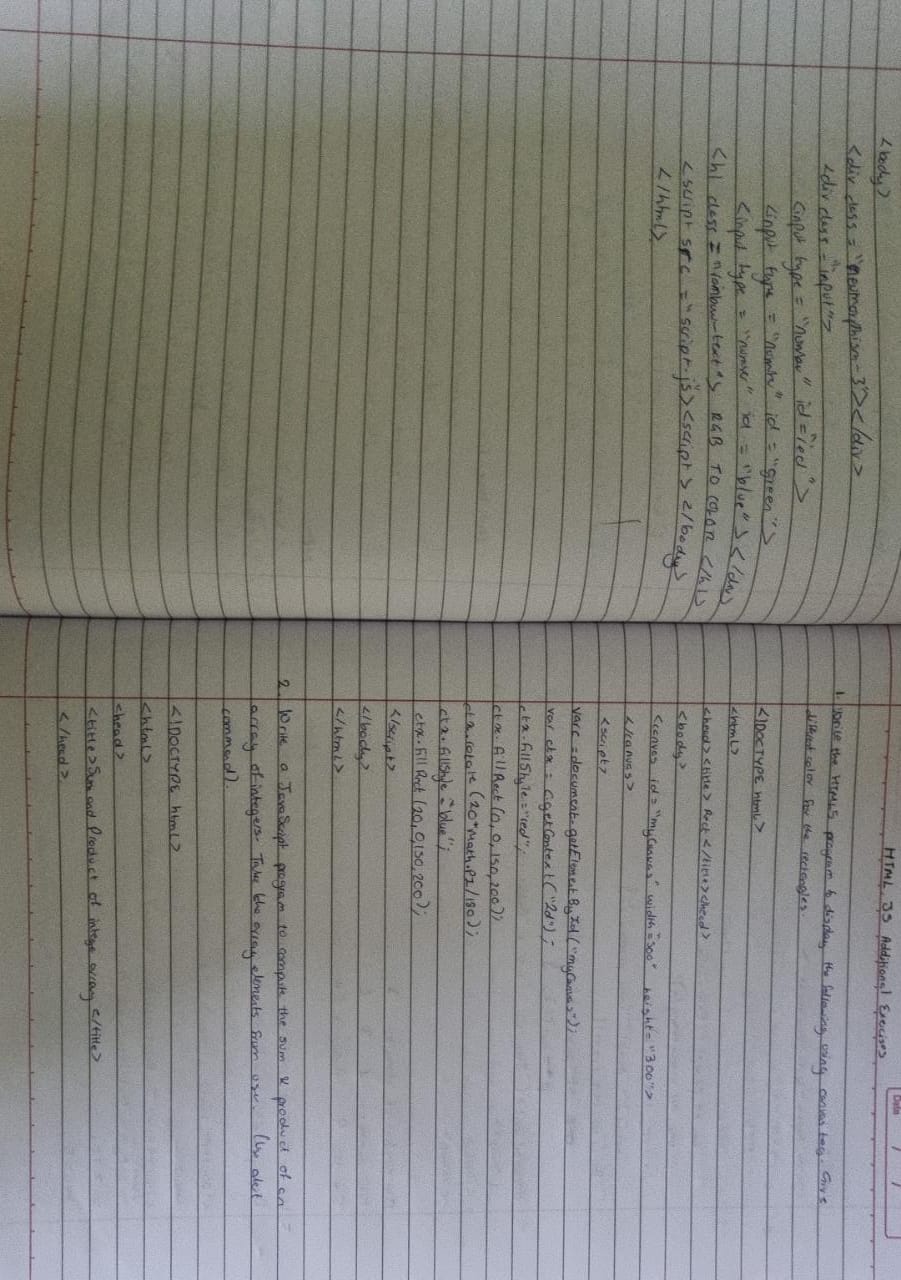 <body>
<div class = "neumorphism-3"></div>
<div class = "input">
<input type = "number" id = "red">
<input type = "number" id = "green">
<input type = "number" id = "blue"></div>
<h1 class = "rainbow-text"> RGB TO COLOR </h1>
<script src = "script.js"><script> </body>
</html>
HTML JS Additional Exercises
Date / /
1. Write the HTML5 program to display the following using canvas tag. Give
different color for the rectangles.
<!DOCTYPE html>
<html>
<head><title> Rect </title><head>
<body>
<canvas id = "myCanvas" width = "500" height = "300">
</canvas>
<script>
var c = document.getElementById("myCanvas");
var ctx = c.getContext("2d");
ctx.fillStyle = "red";
ctx.fillRect(0, 0, 150, 200);
ctx.rotate (20*Math.PI/180);
ctx.fillStyle = "blue";
ctx.fillRect (20, 0, 150, 200);
</script>
</body>
</html>
2. Write a JavaScript program to compute the sum & product of an
array of integers. Take the array elements from user. (Use alert
command).
<!DOCTYPE html>
<html>
<head>
<title> Sum and Product of integer array </title>
</head>